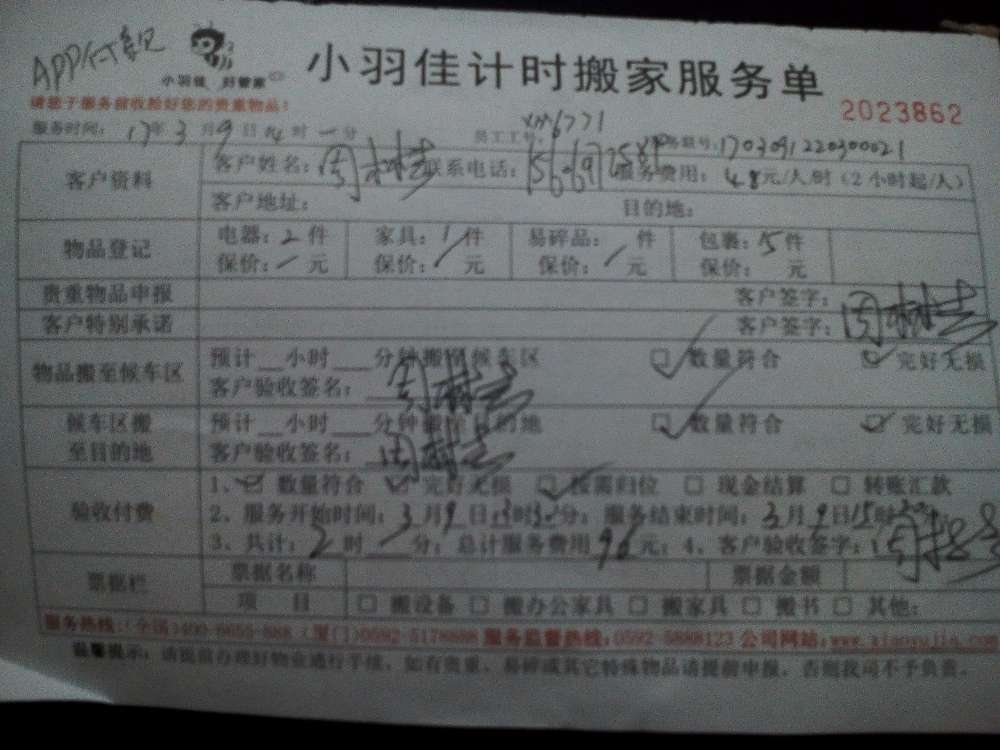 APP付款
小羽佳 好管家
小羽佳计时搬家服务单
2023862
请您于服务前收捡好您的贵重物品!
服务时间: 17年 3月 9日 14时 一分 员工工号: XM6771 170309122030021
客户资料 客户姓名: 周 联系电话: 服务费用: 48元/人/时(2小时起/人)
客户地址: 目的地:
物品登记 电器: 2件 家具: 1件 易碎品: 件 包裹: 5件
保价: 元 保价: 元 保价: 元 保价: 元
贵重物品申报 客户签字:
客户特别承诺 客户签字: 周
物品搬至候车区 预计__小时___分钟搬至候车区 数量符合 完好无损
客户验收签名: 周
候车区搬至目的地 预计__小时___分钟搬至目的地 数量符合 完好无损
客户验收签名: 周
验收付费 1、数量符合 完好无损 按需归位 现金结算 转账汇款
2、服务开始时间: 3月9日13时30分; 服务结束时间: 3月9日15时30
3、共计: 2时 分; 总计服务费用96元; 4、客户验收签字: 周
票据栏 票据名称 票据金额
项目 搬设备 搬办公家具 搬家具 搬书 其他:
服务热线:(全国)400-6655-888 (厦门)0592-5178888 服务监督热线:0592-5888123 公司网站:www.xiaoyujia.com
温馨提示: 请提前办理好物业通行手续, 如有贵重、易碎或其它特殊物品请提前申报, 否则我司不予负责。